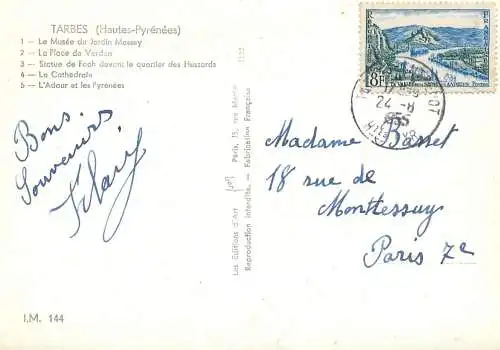 TARBES (Hautes-Pyrénées)
1 — Le Musée du Jardin Massey
2 — La Place de Verdun
3 — Statue de Foch devant le quartier des Hussards
4 — La Cathédrale
5 — L'Adour et les Pyrénées
Bons
Souvenirs
I.M. 144
Les Editions d'Art Paris, 15, rue
Reproduction interdite. — Fabrication Française
8F
24 - 8
Madame
18 rue de
Monttessuy
Paris 7e